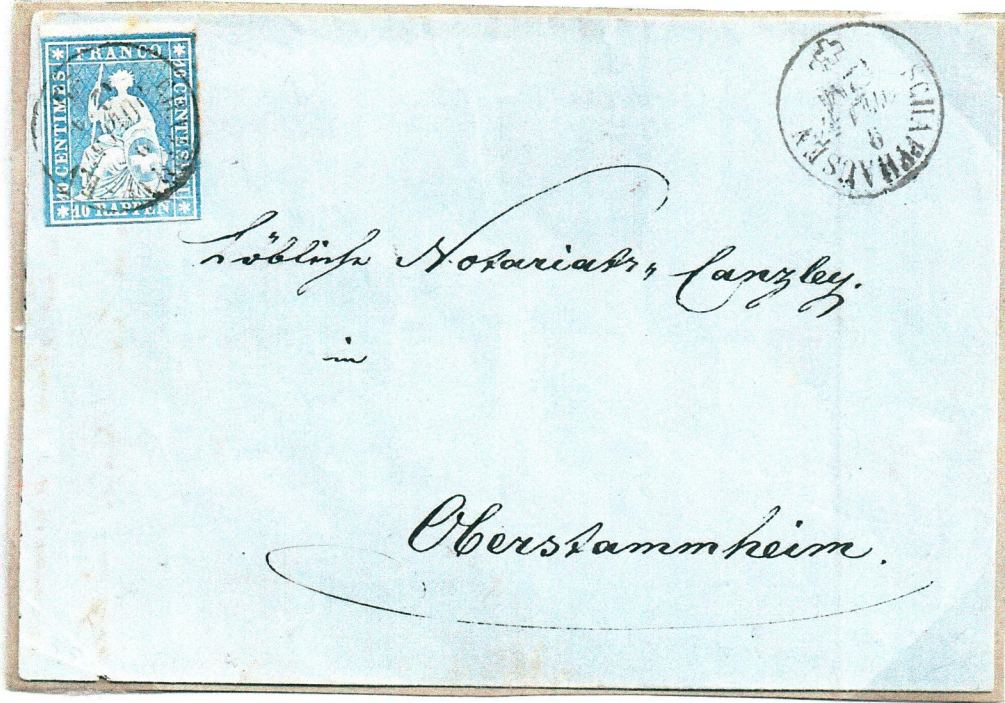 FRANCO
10 CENTIMES
10 RAPPEN
SCHAFFHAUSEN
Löbliche Notariats„ Canzley.
in
Oberstammheim.